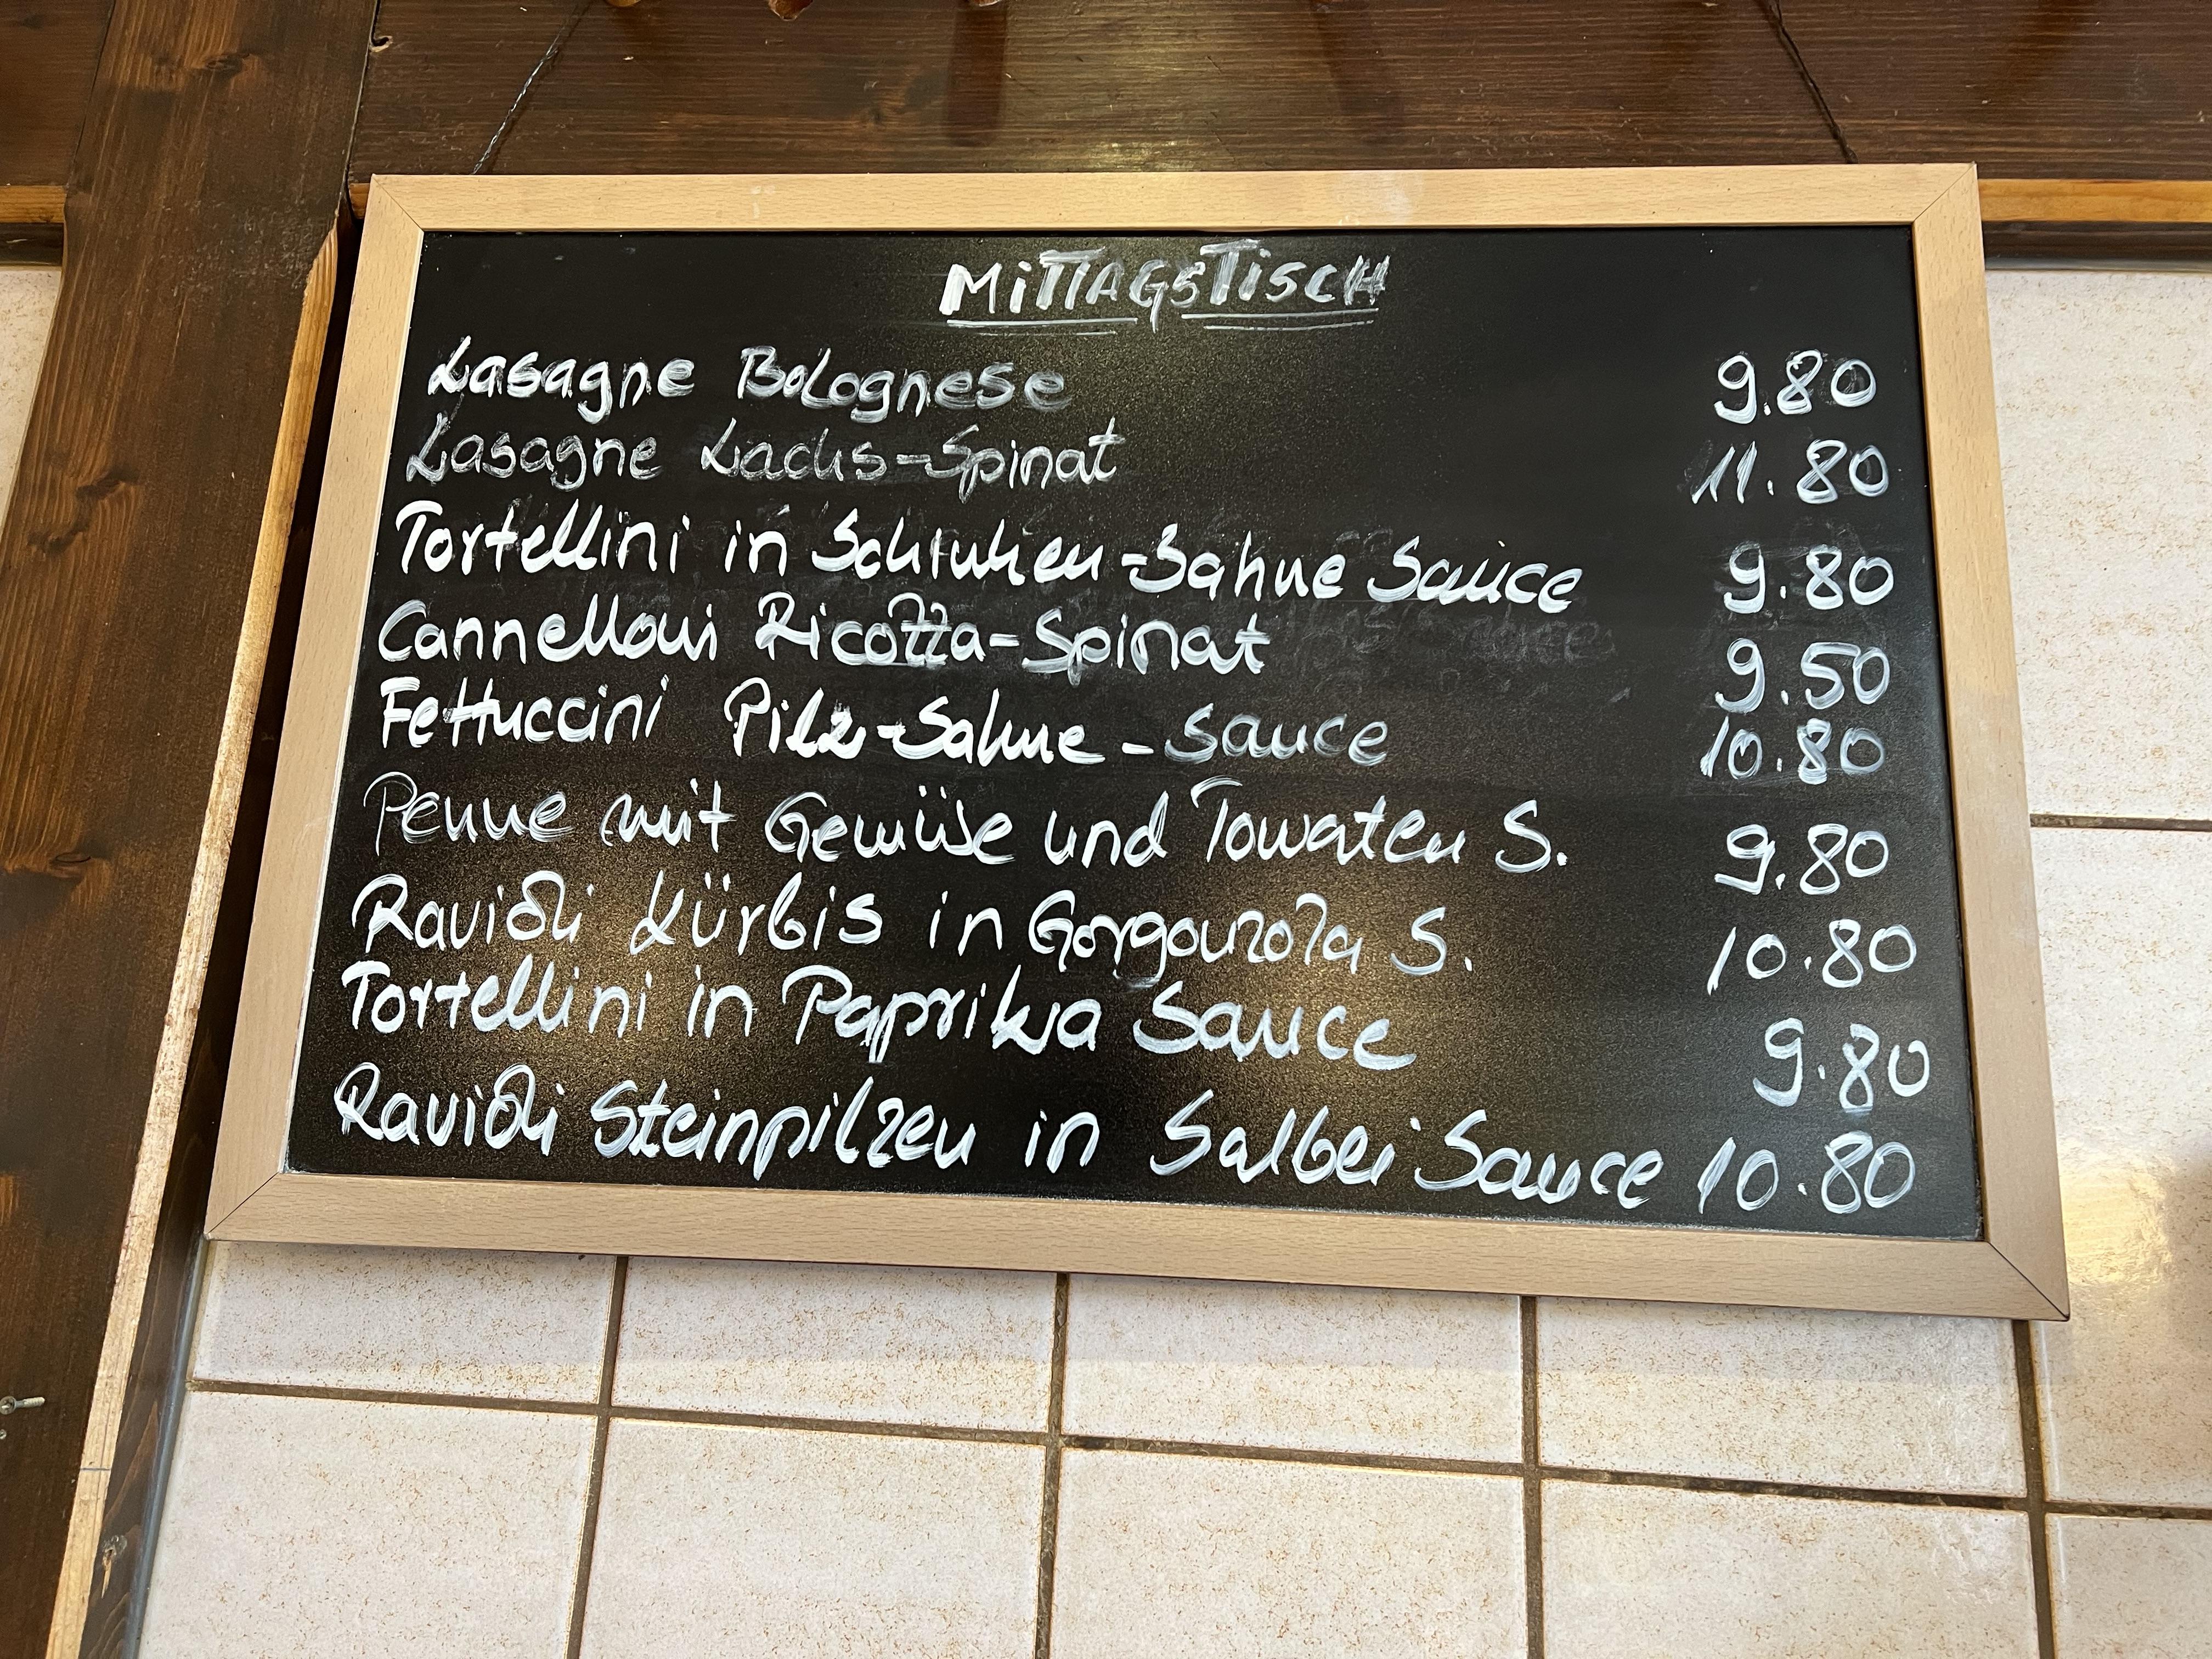 MITTAGSTISCH
Lasagne Bolognese 9.80
Lasagne Lachs-Spinat 11.80
Tortellini in Schinken-Sahne Sauce 9.80
Cannelloni Ricotta-Spinat 9.50
Fettuccini Pilz-Sahne-Sauce 10.80
Penne mit Gemüse und Tomaten S. 9.80
Ravioli Kürbis in Gorgonzola S. 10.80
Tortellini in Paprika Sauce 9.80
Ravioli Steinpilzen in Salbei Sauce 10.80